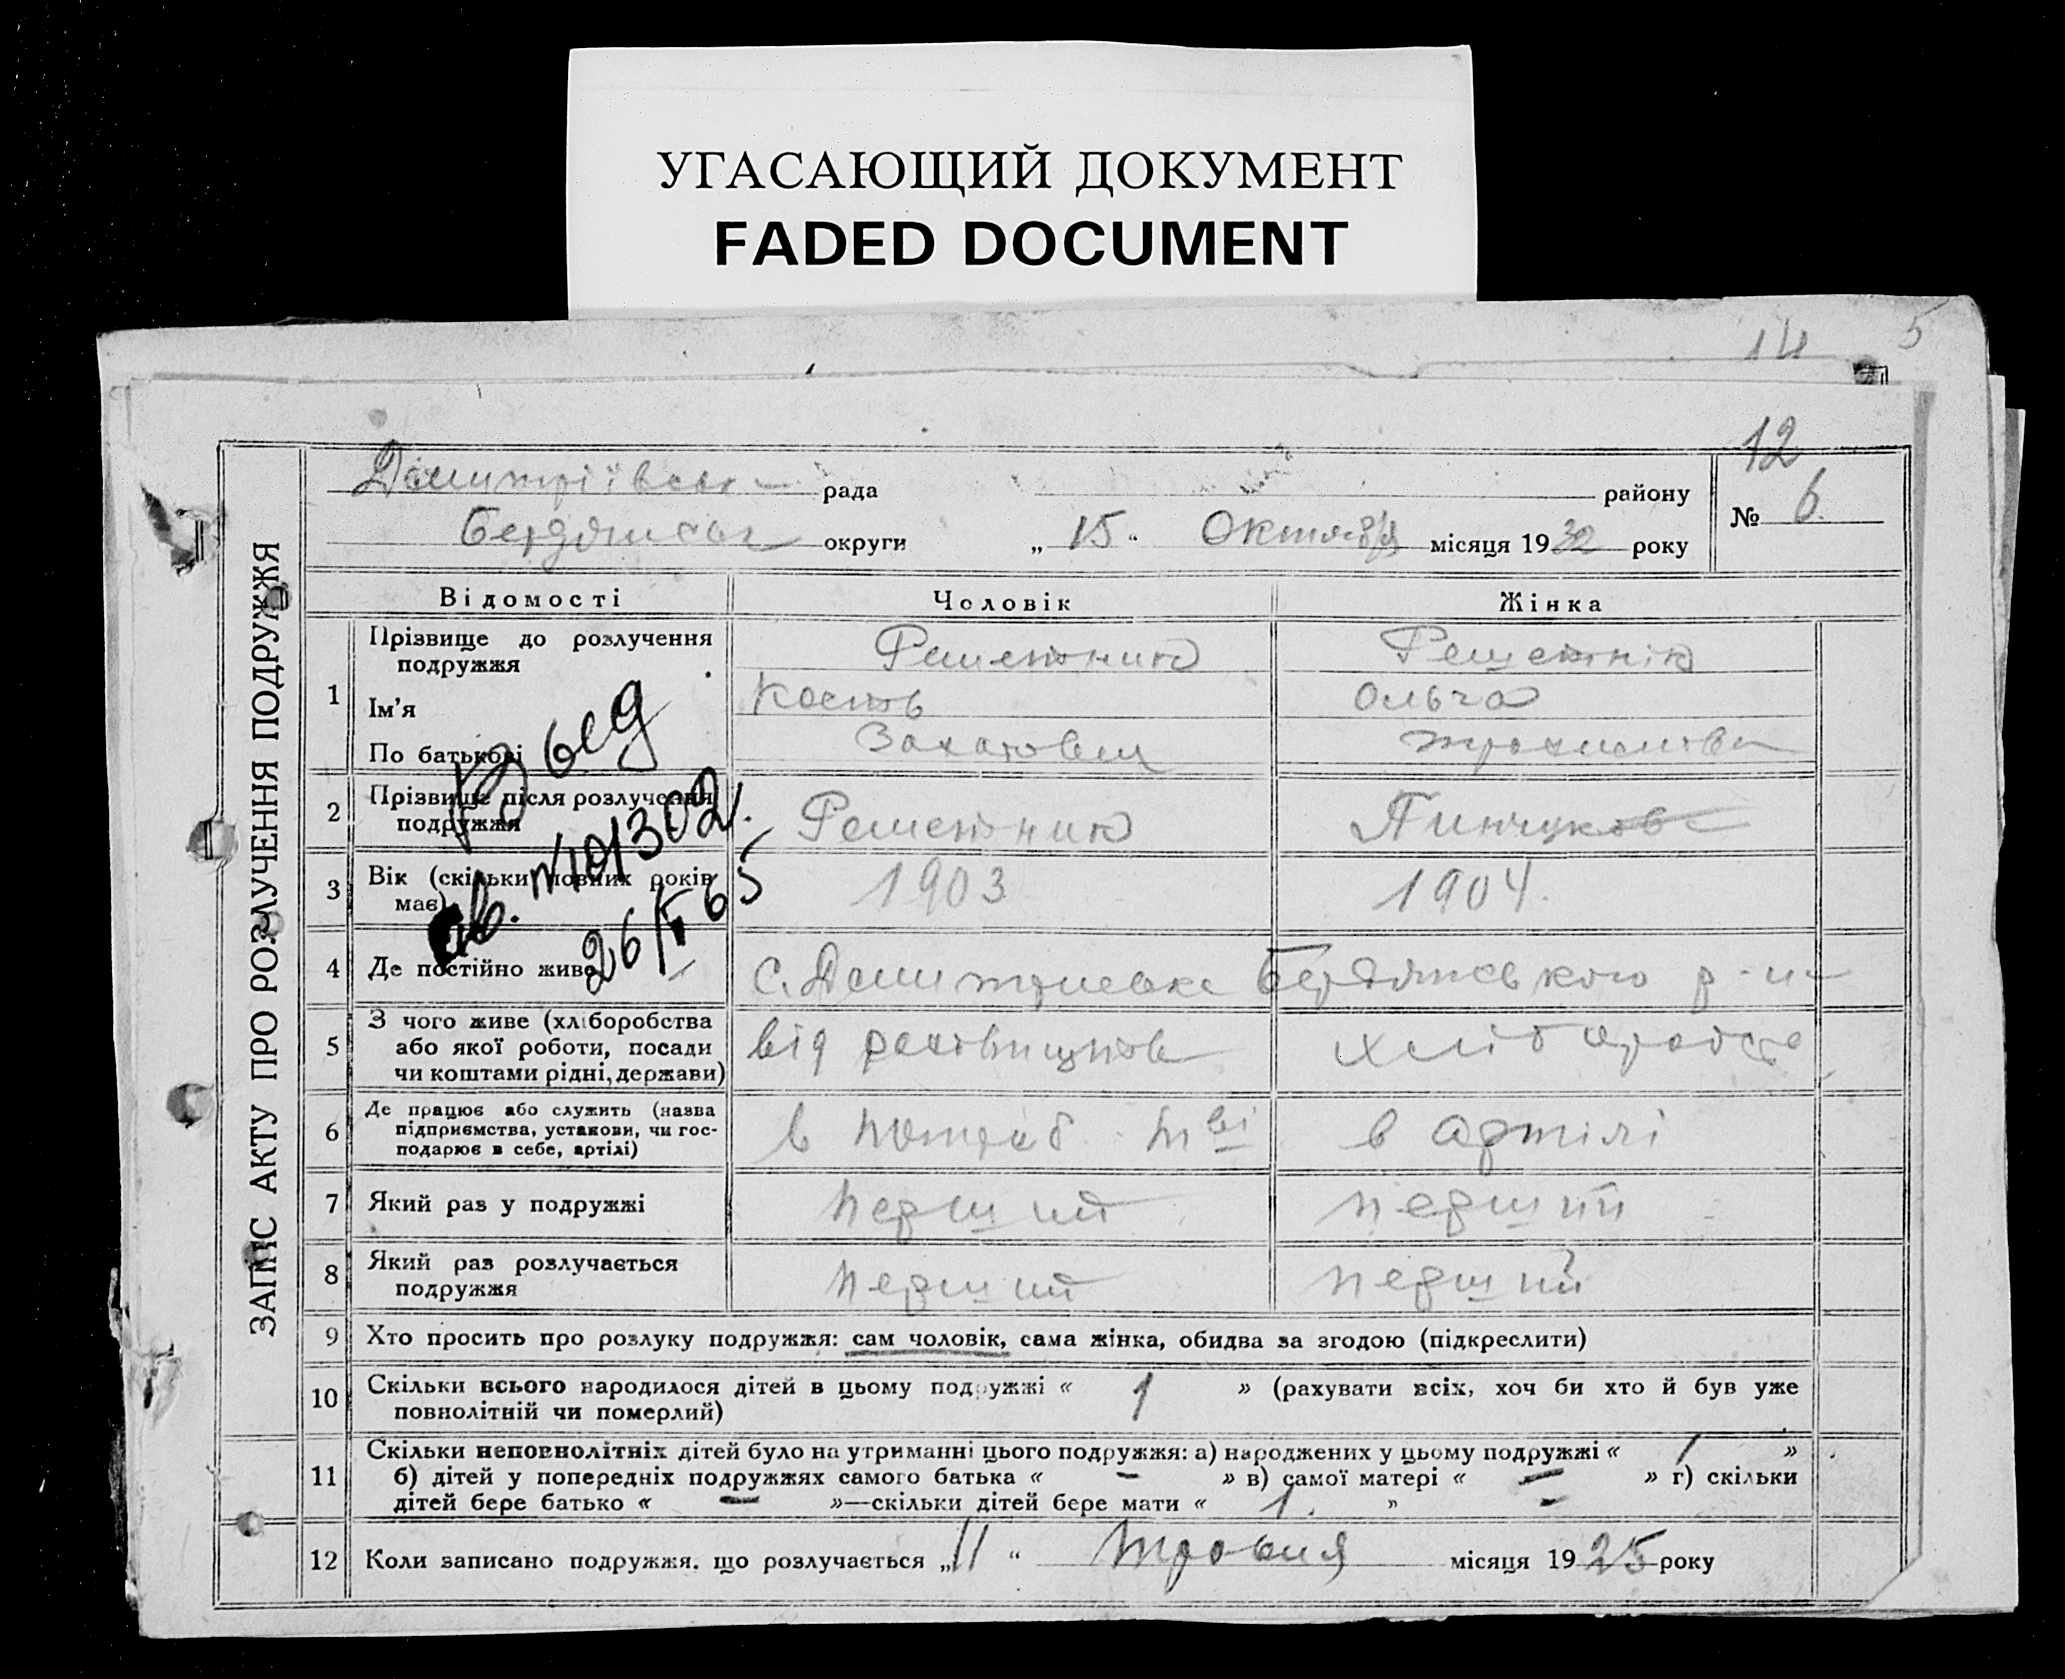 УГАСАЮЩИЙ ДОКУМЕНТ
FADED DOCUMENT
14 5
12
ЗАПИС АКТУ ПРО РОЗЛУЧЕННЯ ПОДРУЖЖЯ
Дмитріївськ рада району
№ 6.
Бердянськ округи „ 15 “ Октября місяця 1932 року
Відомості Чоловік Жінка
1 Прізвище до розлучення подружжя Решетник Решетнік
Ім’я Костів Ольга
По батькові Захарович Трохимовна
2 Прізвище після розлучення подружжя Решетник Пинчукова
3 Вік (скільки повних років має) 1903 1904.
Выд
св. №101302.
26/V 65
4 Де постійно живе с. Дмитриевка Бердянського р-н
5 З чого живе (хліборобства або якої роботи, посади чи коштами рідні, держави) від хліборобства
6 Де працює або служить (назва підприємства, установи, чи господарює в себе, артілі) в потреб т-ві в артілі
7 Який раз у подружжі перший перший
8 Який раз розлучається подружжя перший перший
9 Хто просить про розлуку подружжя: сам чоловік, сама жінка, обидва за згодою (підкреслити)
10 Скільки всього народилося дітей в цьому подружжі « 1 » (рахувати всіх, хоч би хто й був уже
повнолітній чи померлий)
11 Скільки неповнолітніх дітей було на утриманні цього подружжя: а) народжених у цьому подружжі « 1 »
б) дітей у попередніх подружжях самого батька « - » в) самої матері « - » г) скільки
дітей бере батько « — »—скільки дітей бере мати « 1. »
12 Коли записано подружжя, що розлучається „ 11 “ травня місяця 1925 року